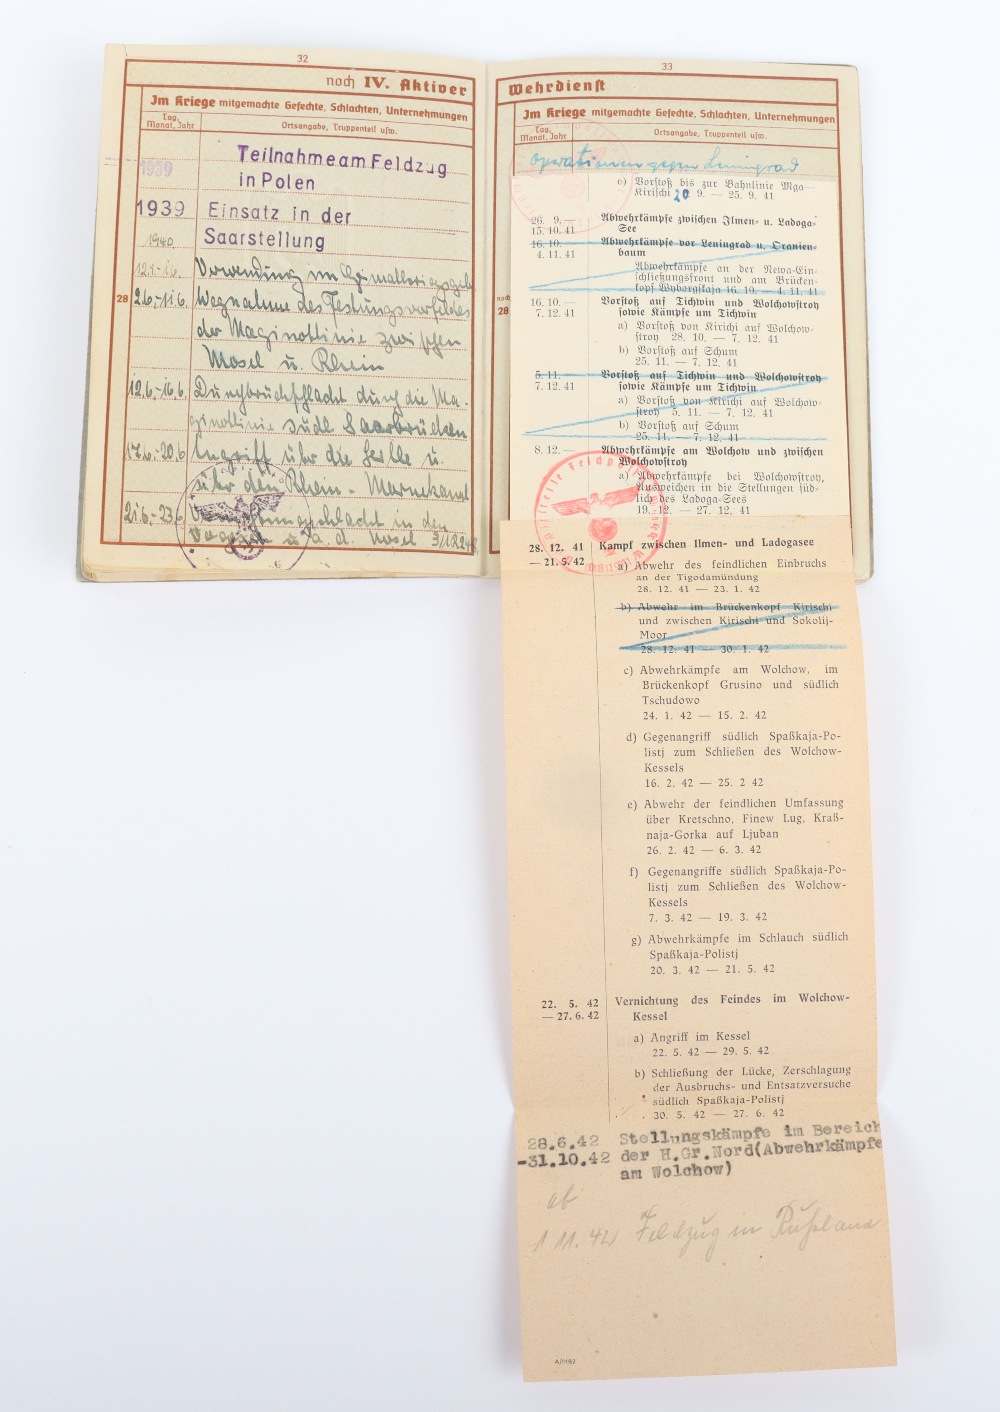 32
noch IV. Aktiver
Im Kriege mitgemachte Gefechte, Schlachten, Unternehmungen
Tag, Monat, Jahr
Ortsangabe, Truppenteil usw.
1939
Teilnahme am Feldzug
in Polen
1939 Einsatz in der
Saarstellung
1940
Verwendung im
28
2.6.-11.6. Wegnahme des Festungsvorfeldes
der Maginotlinie zwischen
Mosel u. Rhein
12.6.-16.6. Durchbruchschlacht durch die Ma-
ginotlinie südl. Saarbrücken
17.6.-20.6 Angriff über die Seille u.
über den Rhein-Marnekanal
21.6.-23.6 schlacht in den
Vogesen u. a. d. Mosel
33
Wehrdienst
Im Kriege mitgemachte Gefechte, Schlachten, Unternehmungen
Tag, Monat, Jahr
Ortsangabe, Truppenteil usw.
Operationen gegen Leningrad
c) Vorstoß bis zur Bahnlinie Mga—
Kirischi 20 9. — 25. 9. 41
26. 9. — Abwehrkämpfe zwischen Ilmen- u. Ladoga-
15. 10. 41 See
16. 10. — Abwehrkämpfe vor Leningrad u. Oranien-
4. 11. 41 baum
Abwehrkämpfe an der Newa-Ein-
schließungsfront und am Brücken-
kopf Wyborgskaja 16. 10. — 4. 11. 41
noch
28
16. 10. — Vorstoß auf Tichwin und Wolchowstroy
7. 12. 41 sowie Kämpfe um Tichwin
a) Vorstoß von Kirichi auf Wolchow-
stroy 28. 10. — 7. 12. 41
b) Vorstoß auf Schum
25. 11. — 7. 12. 41
5. 11. — Vorstoß auf Tichwin und Wolchowstroy
7. 12. 41 sowie Kämpfe um Tichwin
a) Vorstoß von Kirichi auf Wolchow-
stroy 5. 11. — 7. 12. 41
b) Vorstoß auf Schum
25. 11. — 7. 12. 41
8. 12. — Abwehrkämpfe am Wolchow und zwischen
Wolchowstroy
a) Abwehrkämpfe bei Wolchowstroy,
Ausweichen in die Stellungen süd-
lich des Ladoga-Sees
19. 12. — 27. 12. 41
28. 12. 41 Kampf zwischen Ilmen- und Ladogasee
— 21. 5. 42
a) Abwehr des feindlichen Einbruchs
an der Tigodamündung
28. 12. 41 — 23. 1. 42
b) Abwehr im Brückenkopf Kirischi
und zwischen Kirischi und Sokolij-
Moor
28. 12. 41 — 30. 1. 42
c) Abwehrkämpfe am Wolchow, im
Brückenkopf Grusino und südlich
Tschudowo
24. 1. 42 — 15. 2. 42
d) Gegenangriff südlich Spaßkaja-Po-
listj zum Schließen des Wolchow-
Kessels
16. 2. 42 — 25. 2 42
e) Abwehr der feindlichen Umfassung
über Kretschno, Finew Lug, Kraß-
naja-Gorka auf Ljuban
26. 2. 42 — 6. 3. 42
f) Gegenangriffe südlich Spaßkaja-Po-
listj zum Schließen des Wolchow-
Kessels
7. 3. 42 — 19. 3. 42
g) Abwehrkämpfe im Schlauch südlich
Spaßkaja-Polistj
20. 3. 42 — 21. 5. 42
22. 5. 42 Vernichtung des Feindes im Wolchow-
— 27. 6. 42 Kessel
a) Angriff im Kessel
22. 5. 42 — 29. 5. 42
b) Schließung der Lücke, Zerschlagung
der Ausbruchs- und Entsatzversuche
südlich Spaßkaja-Polistj
30. 5. 42 — 27. 6. 42
28.6.42 Stellungskämpfe im Bereich
-31.10.42 der H.Gr.Nord(Abwehrkämpfe
am Wolchow)
ab
1 11. 42 Feldzug in Rußland
A/1182